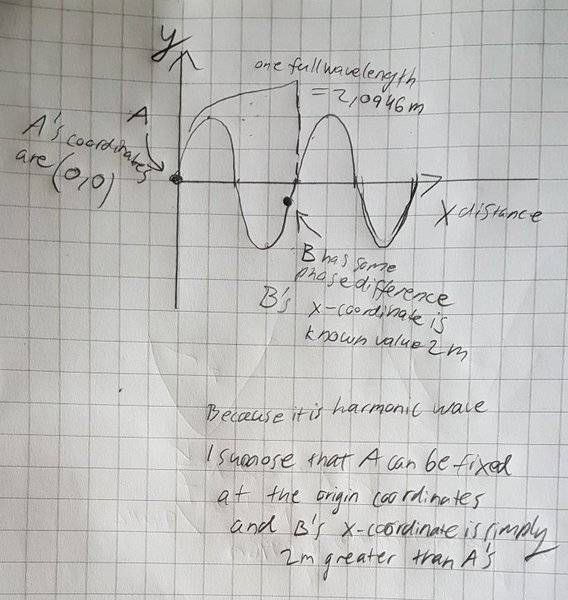 y
one full wavelength
= 2,0946 m
A
A's coordinates
are (0,0)
X distance
B has some
phase difference
B's x-coordinate is
known value 2 m
Because it is harmonic wave
I suppose that A can be fixed
at the origin coordinates
and B's x-coordinate is simply
2m greater than A's